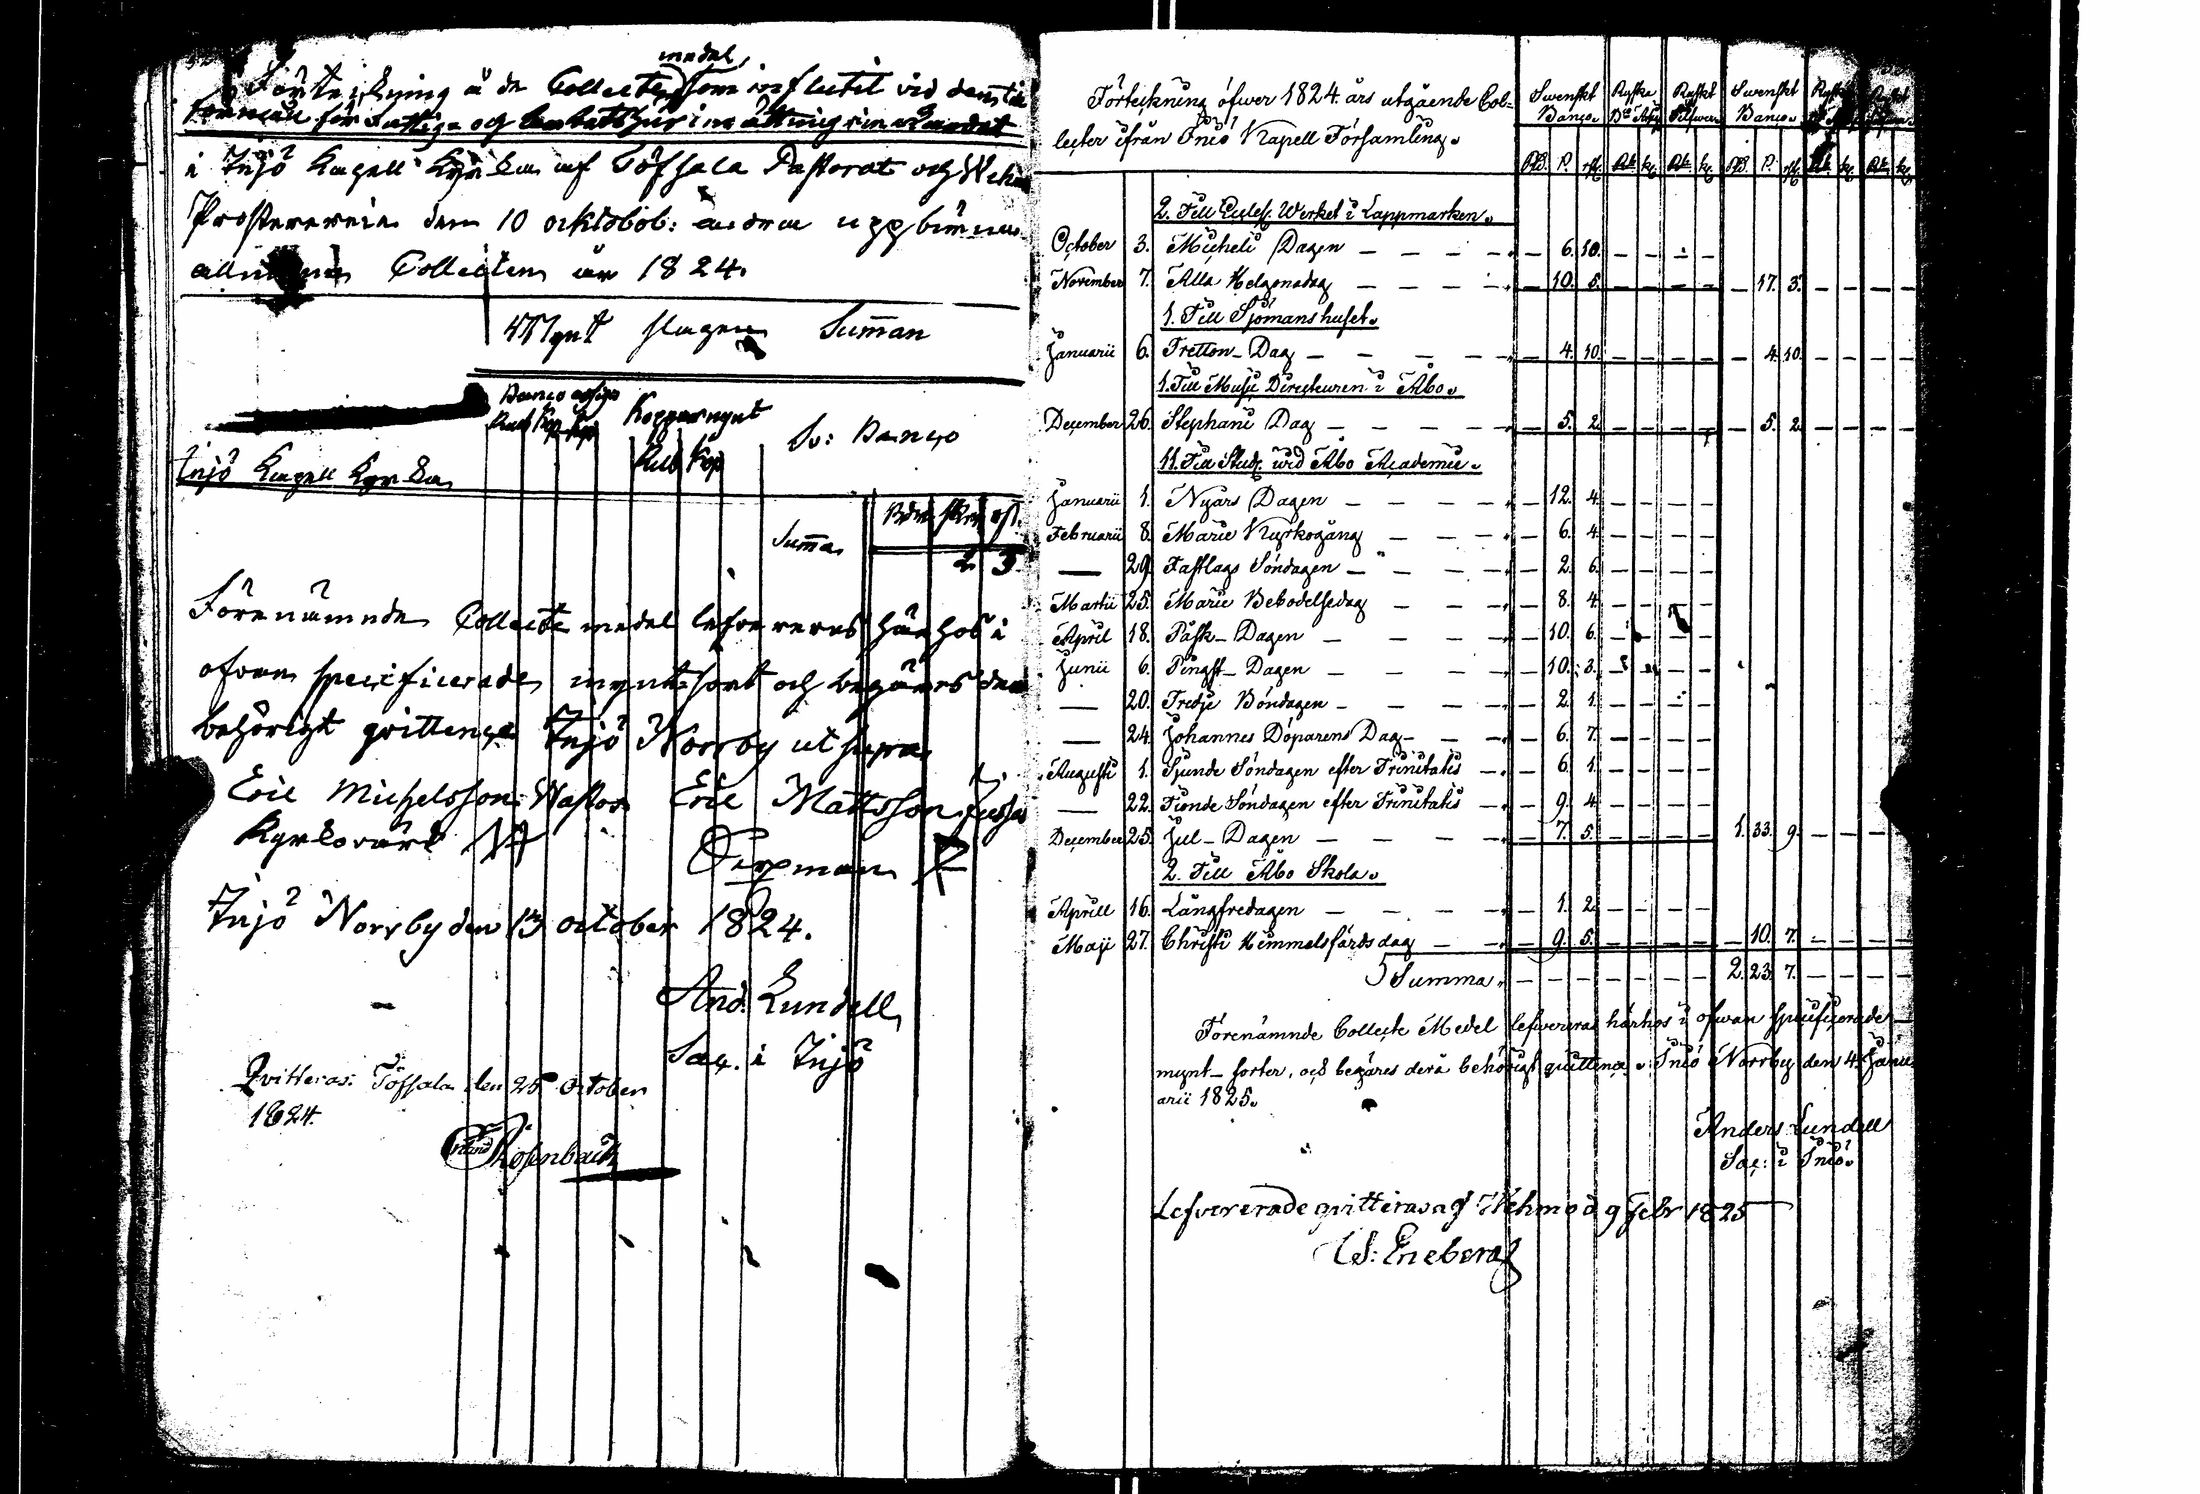 medel,
Förteckning å de Collecter som influtit vid den till
förmån för Fattige och
i Iniö Kapell Kyrka af Töfsala Pastorat och Wehmo
Prosteri den 10 october: andra uppburna
allmänna Collecten år 1824.
Mynt slagen Summan
Banco assign Kopparmynt Sv: Banco
Rub Kop Rub Kop
Iniö Kapell Kyrka
Summa Rdr sk rst.
2. 3.
Förenämnde Collecte medel lefvereres härhos i
ofvan specificerade mynt-sort och begäres derå
behörigt qvittence Iniö Norrby ut supra
Eric Michelsson Eric Mattsson
Kyrkovärd
Iniö Norrby den 13 october 1824.
And. Lundell
Sac. i Iniö
Qvitteras. Töfsala den 25 October
1824.
Rosenback
Förteckning öfwer 1824 års utgående Col-
lecter ifrån Iniö Kapell Församling.
Swenskt Banco. Ryska Bco Assig Ryskt Silfwer Swenskt Banco.
Rd. s. rst. Rub. kop. Rub. kop. Rd. s. rst. Rub. kop. Rub. kop.
2. Till Eccles. Werket i Lappmarken.
October 3. Michelii Dagen — — — — 6. 10. — — — —
November 7. Alla Helgonadag — — — — 10. 5. — — — — — 17. 3. — — — —
1. Till Sjömanshuset.
Januarii 6. Tretton-Dag — — — — 4. 10. — — — — — 4. 10. — — — —
1. Till Musik Directeuren i Åbo.
December 26. Stephani Dag — — — — 5. 2. — — — — — 5. 2. — — — —
11. Till Stud. wid Åbo Academie.
Januarii 1. Nyårs Dagen — — — — 12. 4. — — — —
Februarii 8. Mariæ Kyrkogång — — — — 6. 4. — — — —
— 29. Fastlags Söndagen — — — — 2. 6. — — — —
Martii 25. Mariæ Bebodelsedag — — — — 8. 4. — — — —
April 18. Påsk-Dagen — — — — 10. 6. — — — —
Junii 6. Pingst-Dagen — — — — 10. 3. — — — —
— 20. Tredje Böndagen — — — — 2. 1. — — — —
— 24. Johannes Döparens Dag — — — 6. 7. — — — —
Augusti 1. Sjunde Söndagen efter Trinitatis — — 6. 1. — — — —
— 22. Tionde Söndagen efter Trinitatis — — 9. 4. — — — —
December 25. Jul-Dagen — — — — 7. 5. — — — — 1. 33. 9. — — — —
2. Till Åbo Skola.
Aprill 16. Långfredagen — — — — 1. 2. — — — —
Maji 27. Christi Himmelsfärds dag — — — 9. 5. — — — — — 10. 7. — — — —
Summa. — — — — — — — 2. 23. 7. — — — —
Förenämnde Collecte Medel lefvereras härhos i ofwan specificerade
mynt-sorter, och begäres derå behörigt quittence. Iniö Norrby den 4. Janu-
arii 1825.
Anders Lundell
Sac: i Iniö.
Lefvererade qvitteras af Wehmo d 9 Febr 1825
Eneberg